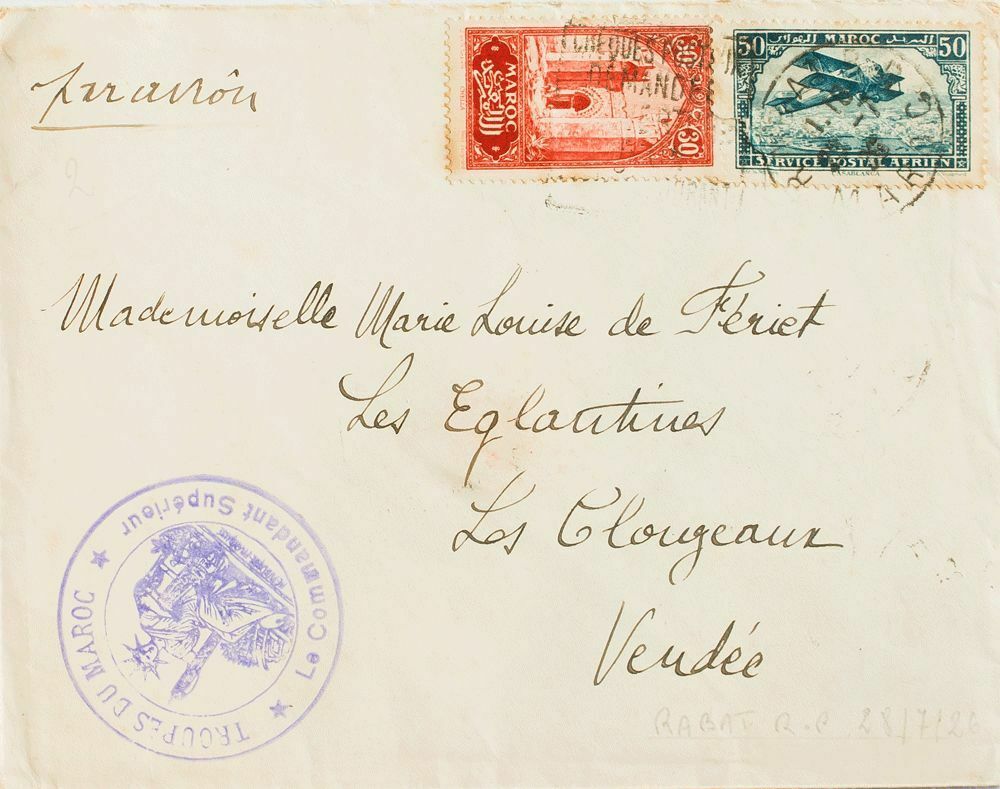 par avion
MAROC
30
30
50 MAROC 50
SERVICE POSTAL AÉRIEN
CASABLANCA
CHÈQUES POSTAUX
DEMANDEZ
RABAT
MAROC
Mademoiselle Marie Louise de Fériet
Les Eglantines
Les Clouzeaux
Vendée
TROUPES DU MAROC
Le Commandant Supérieur
RABAT R.P 28/7/26
2